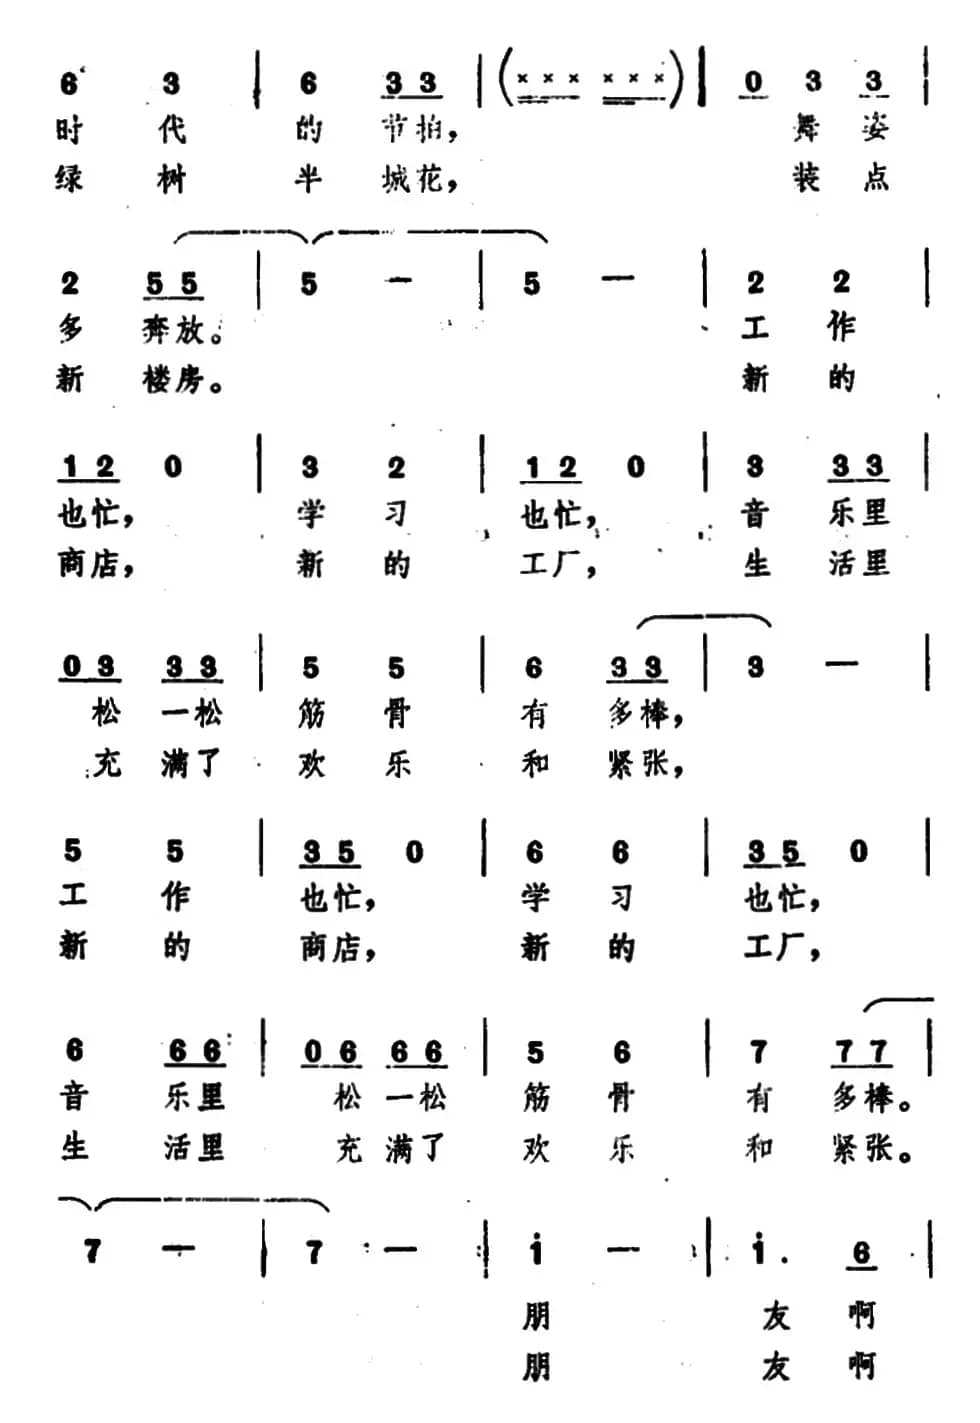 6 3 | 6 33 | (××× ×××) | 0 3 3 |
时代的节拍， 舞姿
绿树半城花， 装点
2 55 | 5 — | 5 — | 2 2 |
多奔放。 工作
新楼房。 新的
12 0 | 3 2 | 12 0 | 3 33 |
也忙， 学习也忙， 音乐里
商店， 新的工厂， 生活里
03 33 | 5 5 | 6 33 | 3 — |
松一松筋骨有多棒，
充满了欢乐和紧张，
5 5 | 35 0 | 6 6 | 35 0 |
工作也忙， 学习也忙，
新的商店， 新的工厂，
6 66 | 06 66 | 5 6 | 7 77 |
音乐里松一松筋骨有多棒。
生活里充满了欢乐和紧张。
7 — | 7 — | i — | i . 6 |
朋友啊
朋友啊